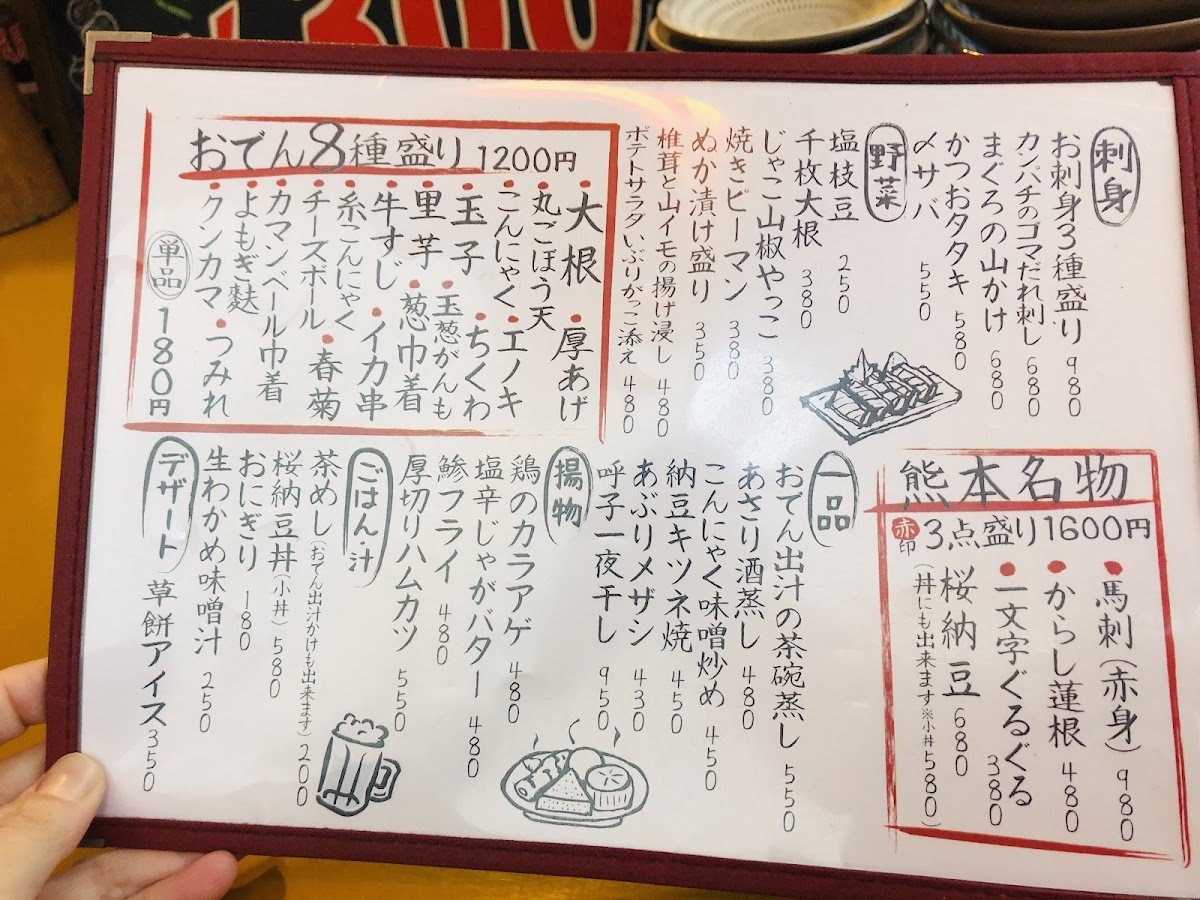 刺身
お刺身3種盛り 980
カンパチのゴマだれ刺し 680
まぐろの山かけ 680
かつおタタキ 580
〆サバ 550
野菜
塩枝豆 250
千枚大根 380
じゃこ山椒やっこ 380
焼きピーマン 380
ぬか漬け盛り 350
椎茸と山イモの揚げ浸し 480
ポテトサラダいぶりがっこ添え 480
おでん8種盛り 1200円
・大根 ・厚あげ
・丸ごぼう天
・こんにゃく ・エノキ
・玉子 ・ちくわ
・里芋 ・玉葱がんも
・牛すじ ・葱巾着
・糸こんにゃく ・イカ串
・チーズボール ・春菊
・カマンベール巾着
・よもぎ麩
・クンカマ ・つみれ
単品 180円
熊本名物
赤印 3点盛り1600円
・馬刺(赤身) 980
・からし蓮根 480
・一文字ぐるぐる 380
桜納豆 680
(丼にも出来ます※小丼580)
一品
おでん出汁の茶碗蒸し 550
あさり酒蒸し 480
こんにゃく味噌炒め 450
納豆キツネ焼 450
あぶりメザシ 430
呼子一夜干し 950
揚物
鶏のカラアゲ 480
塩辛じゃがバター 480
鯵フライ 480
厚切りハムカツ 550
ごはん・汁
茶めし(おでん出汁かけも出来ます) 200
桜納豆丼(小丼) 580
おにぎり 180
生わかめ味噌汁 250
デザート
草餅アイス 350